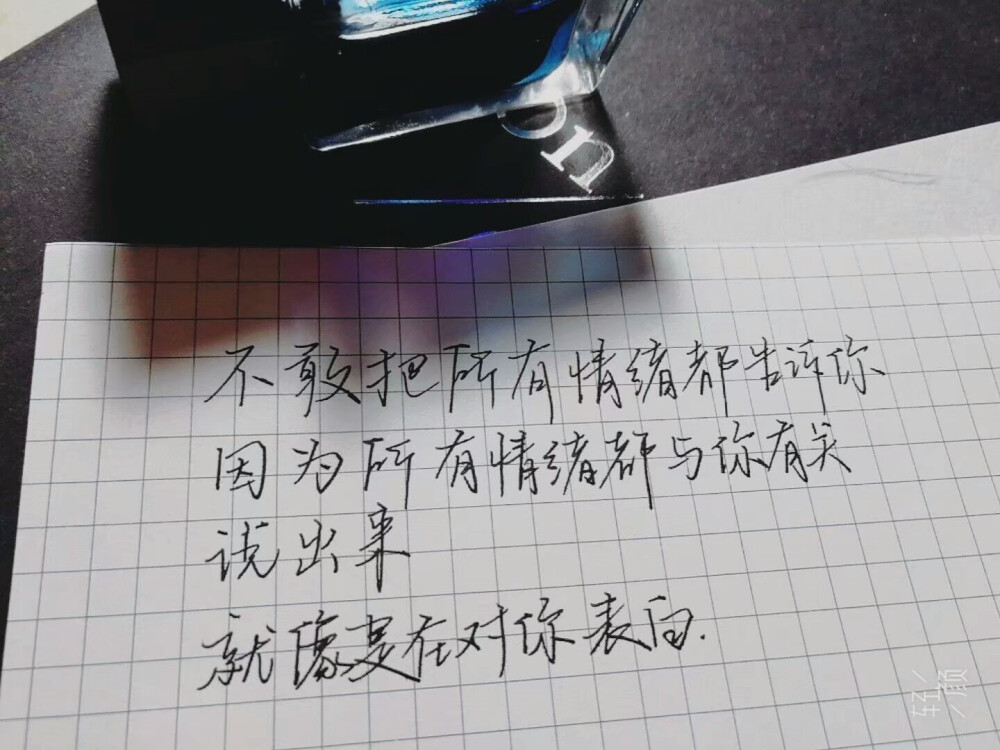 不敢把所有情绪都告诉你
因为所有情绪都与你有关
说出来
就像是在对你表白.
轻颜